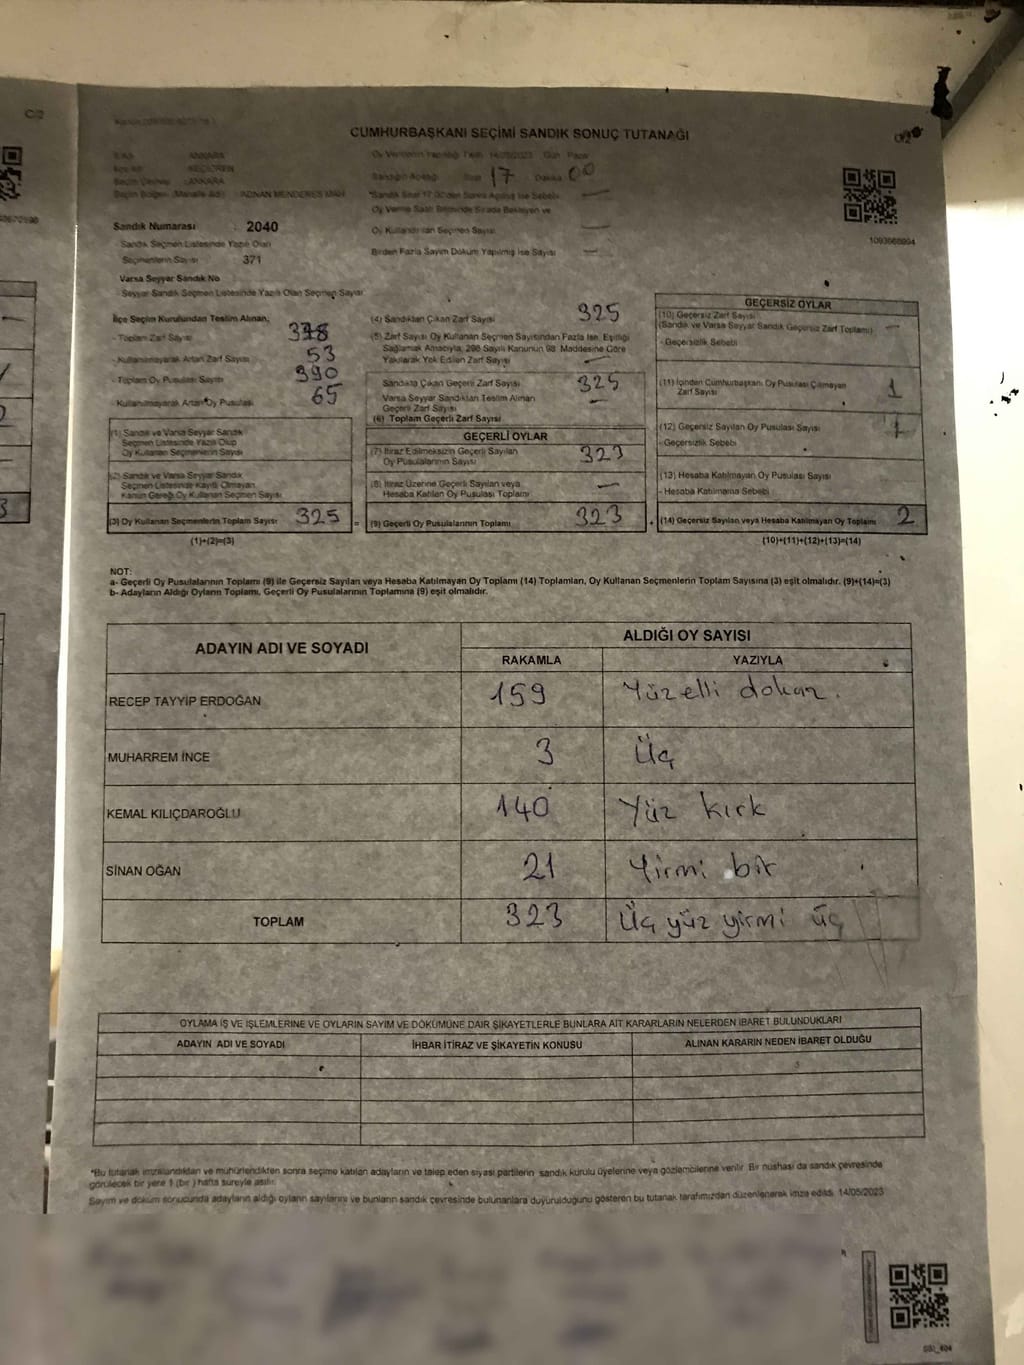 C/2
CUMHURBAŞKANI SEÇİMİ SANDIK SONUÇ TUTANAĞI
Oy Verme 14/05/2023 Gün Pazar
ANKARA
KEÇİÖREN
Sandığın Açıldığı Saat 17 Dakika 00
Seçim Çevresi : ANKARA
Seçim Bölgesi (Mahalle Adı) : ADNAN MENDERES MAH.
*Sandık Saat 17.00'den Sonra Açıldıysa Sebebi —
Oy Verme Saati Bitiminde Sırada Bekleyen ve
Oy Kullandırılan Seçmen Sayısı —
Birden Fazla Sayım Döküm Yapılmış İse Sayısı —
1093666994
Sandık Numarası : 2040
- Sandık Seçmen Listesinde Yazılı Olan
Seçmenlerin Sayısı 371
Varsa Seyyar Sandık No
- Seyyar Sandık Seçmen Listesinde Yazılı Olan Seçmen Sayısı
İlçe Seçim Kurulundan Teslim Alınan;
- Toplam Zarf Sayısı 378
- Kullanılmayarak Artan Zarf Sayısı 53
- Toplam Oy Pusulası Sayısı 390
- Kullanılmayarak Artan Oy Pusulası 65
(1) Sandık ve Varsa Seyyar Sandık
Seçmen Listesinde Yazılı Olup
Oy Kullanan Seçmenlerin Sayısı
(2) Sandık ve Varsa Seyyar Sandık
Seçmen Listesinde Kayıtlı Olmayan
Kanun Gereği Oy Kullanan Seçmen Sayısı
(3) Oy Kullanan Seçmenlerin Toplam Sayısı 325 =
(1)+(2)=(3)
(4) Sandıktan Çıkan Zarf Sayısı 325
(5) Zarf Sayısı Oy Kullanan Seçmen Sayısından Fazla İse, Eşitliği
Sağlamak Amacıyla, 298 Sayılı Kanunun 98. Maddesine Göre
Yakılarak Yok Edilen Zarf Sayısı —
Sandıkta Çıkan Geçerli Zarf Sayısı 325
Varsa Seyyar Sandıktan Teslim Alınan
Geçerli Zarf Sayısı —
(6) Toplam Geçerli Zarf Sayısı
GEÇERLİ OYLAR
(7) İtiraz Edilmeksizin Geçerli Sayılan
Oy Pusulalarının Sayısı 323
(8) İtiraz Üzerine Geçerli Sayılan veya
Hesaba Katılan Oy Pusulası Toplamı —
(9) Geçerli Oy Pusulalarının Toplamı 323 +
GEÇERSİZ OYLAR
(10) Geçersiz Zarf Sayısı
(Sandık ve Varsa Seyyar Sandık Geçersiz Zarf Toplamı) —
- Geçersizlik Sebebi
(11) İçinden Cumhurbaşkanı Oy Pusulası Çıkmayan
Zarf Sayısı 1
(12) Geçersiz Sayılan Oy Pusulası Sayısı 1
- Geçersizlik Sebebi
(13) Hesaba Katılmayan Oy Pusulası Sayısı
- Hesaba Katılmama Sebebi
(14) Geçersiz Sayılan veya Hesaba Katılmayan Oy Toplamı 2
(10)+(11)+(12)+(13)=(14)
NOT:
a- Geçerli Oy Pusulalarının Toplamı (9) ile Geçersiz Sayılan veya Hesaba Katılmayan Oy Toplamı (14) Toplamları, Oy Kullanan Seçmenlerin Toplam Sayısına (3) eşit olmalıdır. (9)+(14)=(3)
b- Adayların Aldığı Oyların Toplamı, Geçerli Oy Pusulalarının Toplamına (9) eşit olmalıdır.
ADAYIN ADI VE SOYADI
ALDIĞI OY SAYISI
RAKAMLA YAZIYLA
RECEP TAYYİP ERDOĞAN 159 Yüzelli dokuz.
MUHARREM İNCE 3 Üç
KEMAL KILIÇDAROĞLU 140 Yüz kırk
SİNAN OĞAN 21 Yirmi bir
TOPLAM 323 Üç yüz yirmi üç
OYLAMA İŞ VE İŞLEMLERİNE VE OYLARIN SAYIM VE DÖKÜMÜNE DAİR ŞİKAYETLERLE BUNLARA AİT KARARLARIN NELERDEN İBARET BULUNDUKLARI
ADAYIN ADI VE SOYADI İHBAR İTİRAZ VE ŞİKAYETİN KONUSU ALINAN KARARIN NEDEN İBARET OLDUĞU
*Bu tutanak imzalandıktan ve mühürlendikten sonra seçime katılan adayların ve talep eden siyasi partilerin sandık kurulu üyelerine veya gözlemcilerine verilir. Bir nüshası da sandık çevresinde
görülecek bir yere 1 (bir) hafta süreyle asılır.
Sayım ve döküm sonucunda adayların aldığı oyların sayılarını ve bunların sandık çevresinde bulunanlara duyurulduğunu gösteren bu tutanak tarafımızdan düzenlenerek imza edildi. 14/05/2023